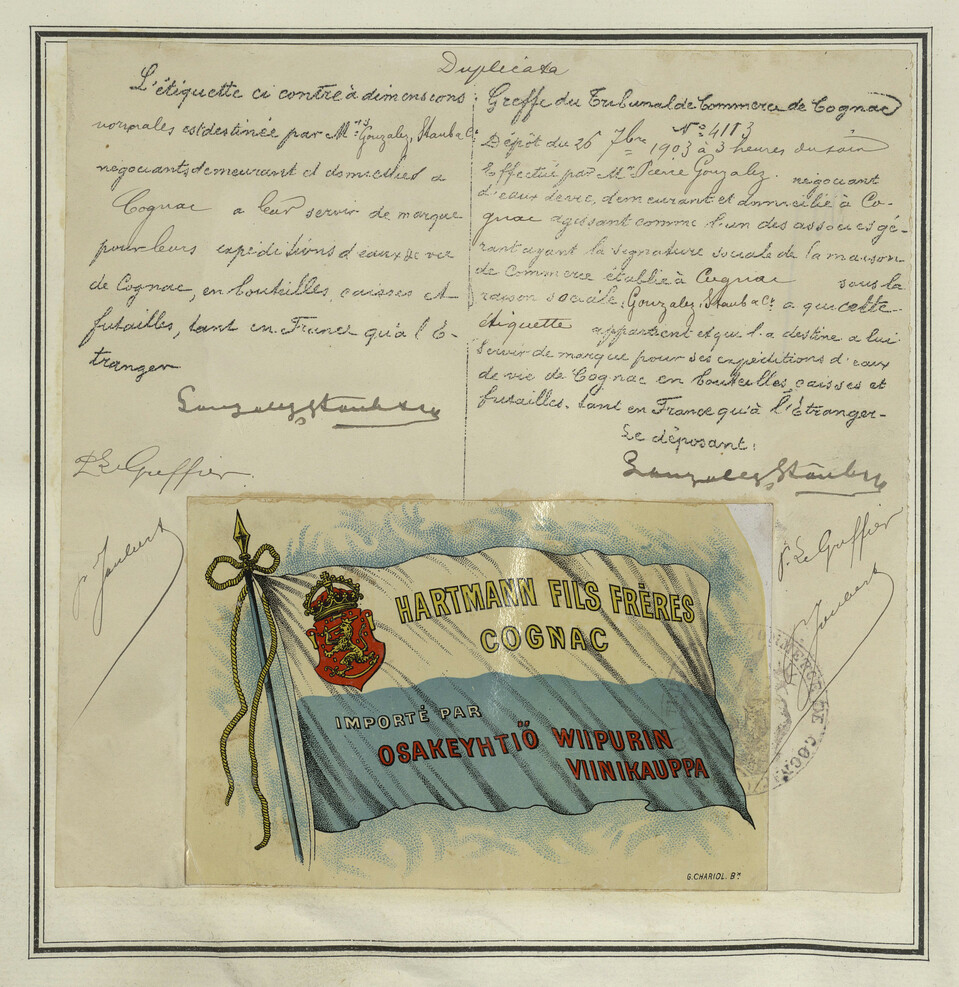 Duplicata
L'étiquette ci contre à dimensions
normales est destinée par Mrs Gonzalez, Staub & Cie
négociants demeurant et domiciliés a
Cognac a leur servir de marque
pour leurs expéditions d'eaux de vie
de Cognac, en bouteilles, caisses et
futailles, tant en France qu'à l'E-
tranger
Gonzalez Staub & Cie
P. Le Greffier
P. Joubert
Greffe du Tribunal de Commerce de Cognac
No 4113
Dépôt du 26 7bre 1903 à 3 heures du soir
Effectué par Mr Pierre Gonzalez. négociant
d'eaux de vie, demeurant et domicilié à Co-
gnac agissant comme l'un des associés gé-
rant ayant la signature sociale de la maison
de Commerce établie à Cognac sous la
raison sociale, Gonzalez, Staub & Cie a qui cette
étiquette appartient et qui l'a destine a lui
servir de marque pour ses expéditions d'eaux
de vie de Cognac en bouteilles, caisses et
futailles. tant en France qu'à l'Etranger-
Le déposant:
Gonzalez Staub & Cie
P. Le Greffier
Joubert
HARTMANN FILS FRÈRES
COGNAC
IMPORTÉ PAR
OSAKEYHTIÖ WIIPURIN
VIINIKAUPPA
G. CHARIOL. Bx
COMMERCE DE COGNAC